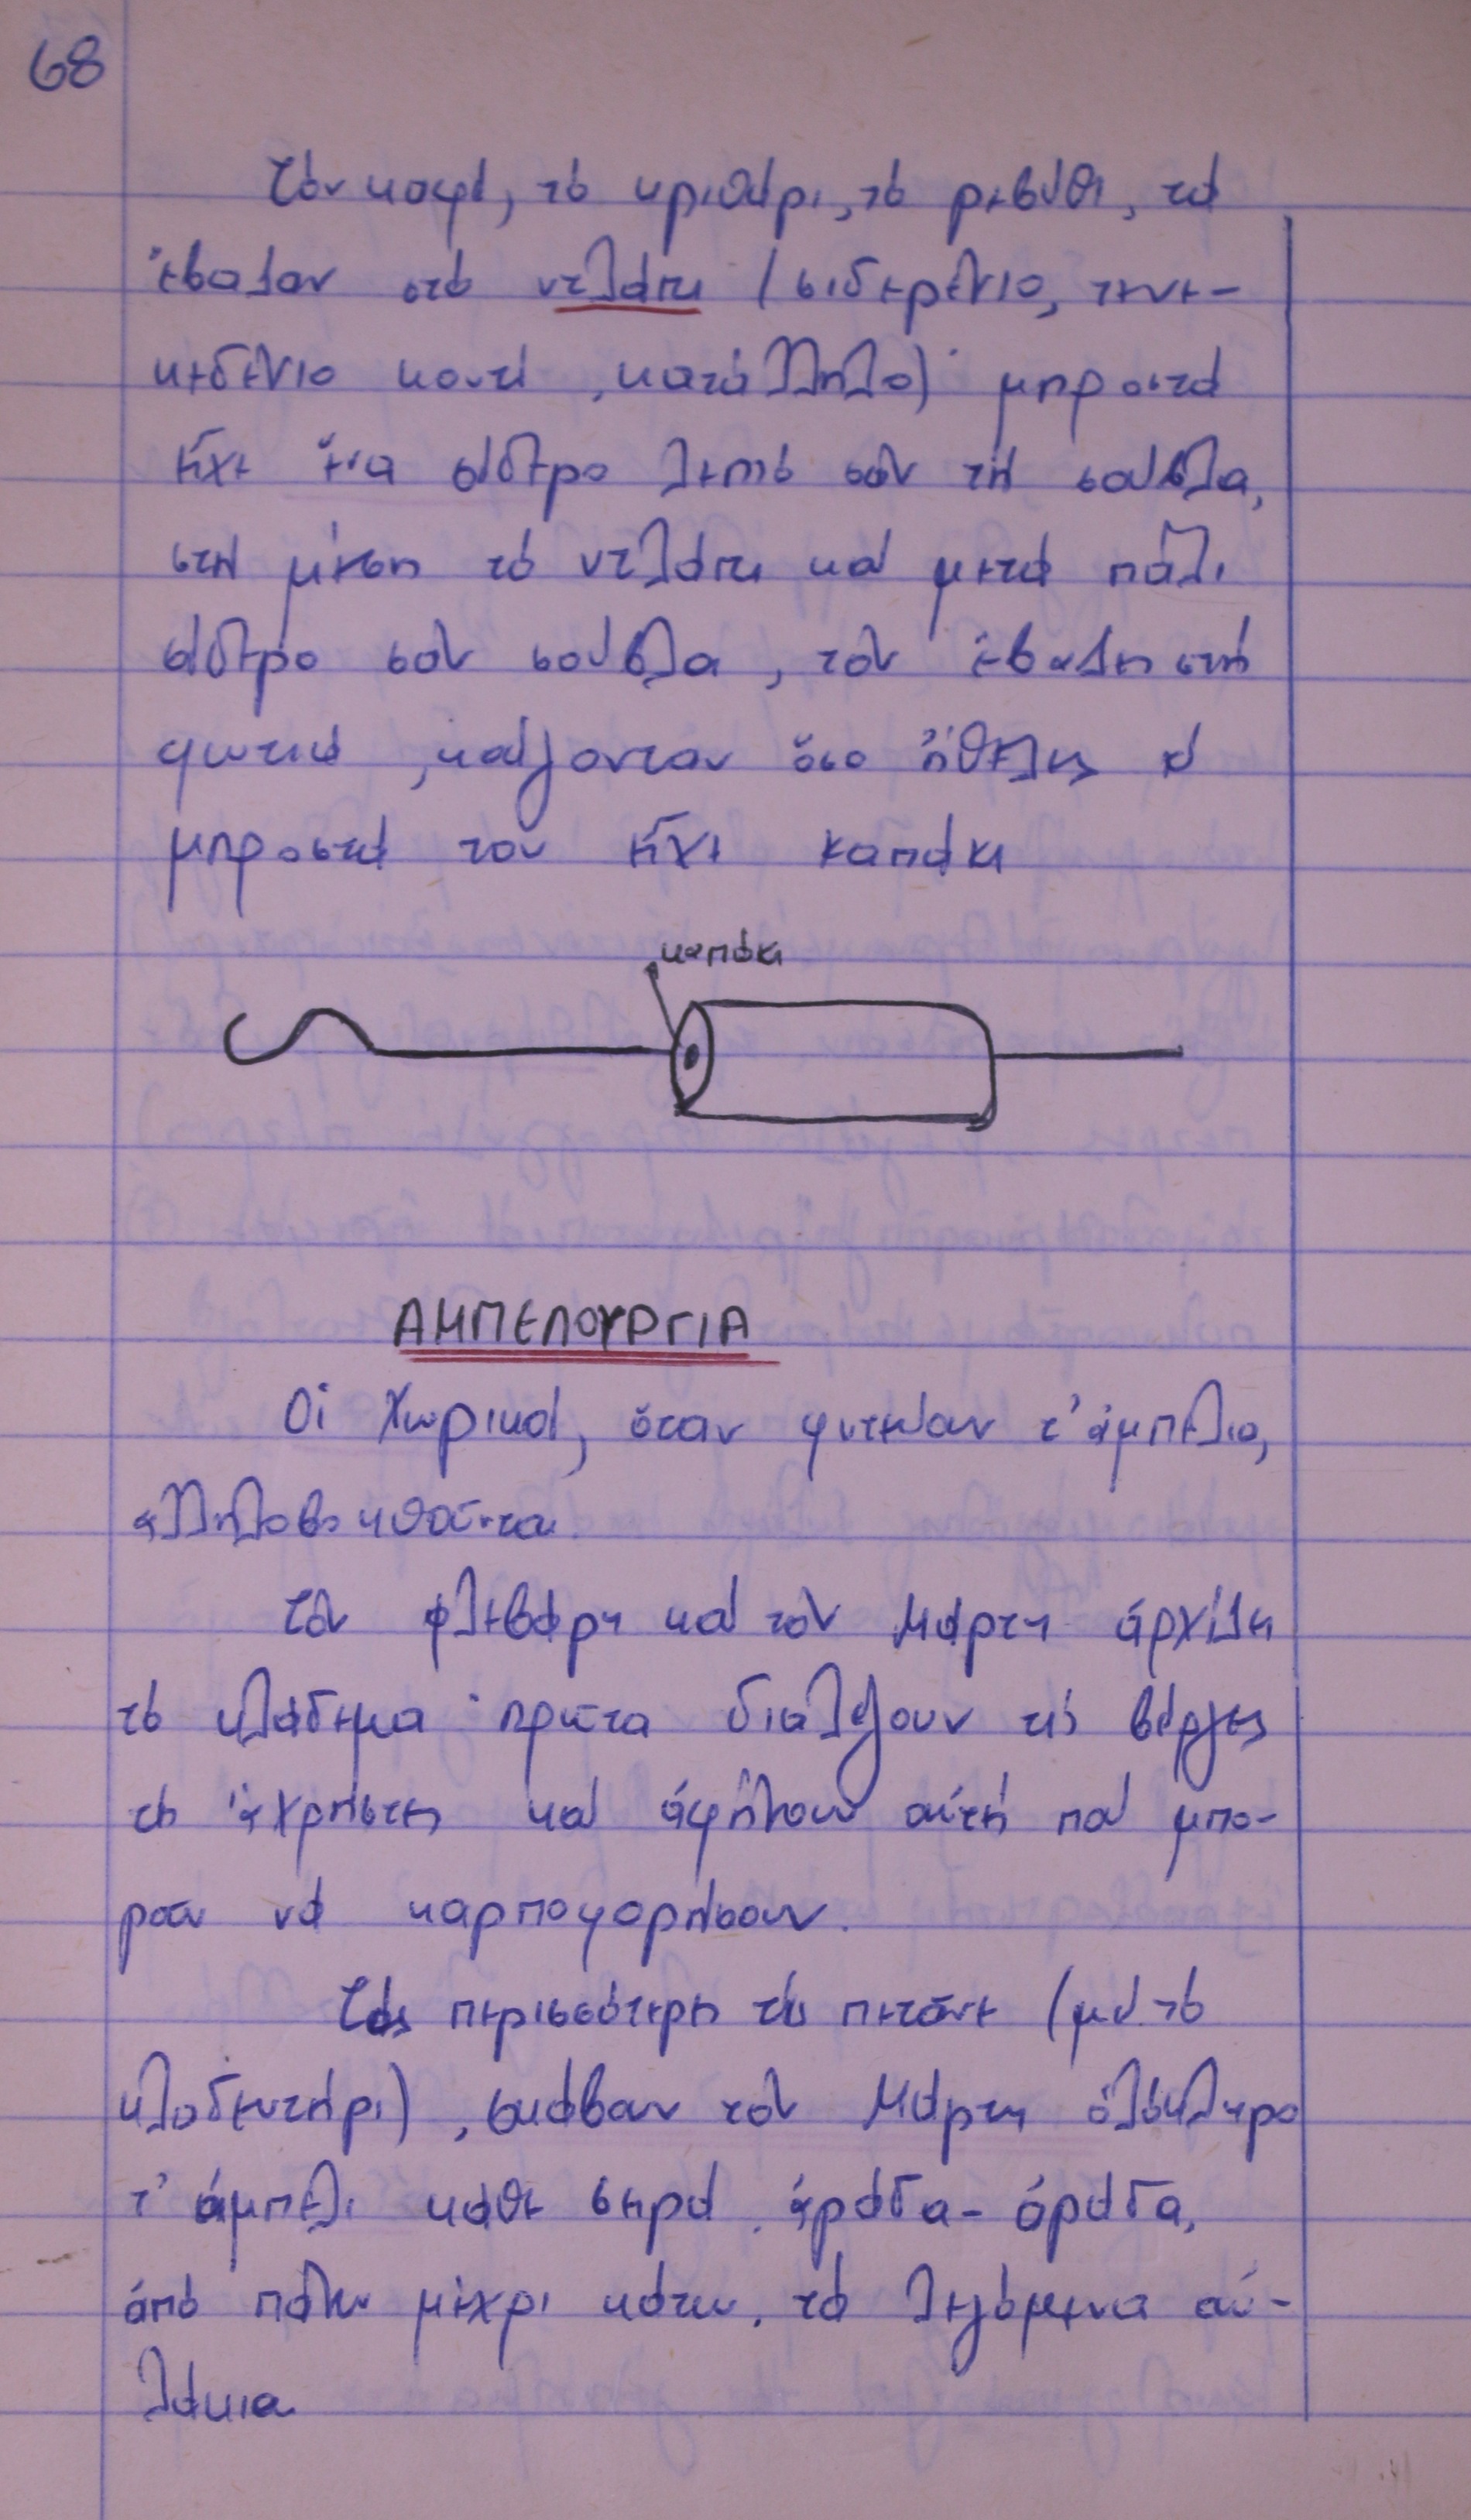 68
Τόν καφέ, τό κριθάρι, τό ρεβύθι, τά
ἔβαζαν στό ντλάπι (σιδερένιο, τενε-
κεδένιο κουτί, κατάλληλο)· μπροστά
εἶχε ἕνα σίδερο λεπτό σάν τή σούβλα,
στή μέση τό ντλάπι καί μετά πάλι
σίδερο σάν σούβλα, τόν ἔβαζες στή
φωτιά, καίγονταν ὅσο ἤθελες κί
μπροστά του εἶχε καπάκι
καπάκι
ΑΜΠΕΛΟΥΡΓΙΑ
Οἱ χωρικοί, ὅταν φυτεύαν τ' ἀμπέλια,
ἀλληλοβοηθοῦνταν.
Τόν Φλεβάρη καί τόν Μάρτη ἀρχίζει
τό κλάδεμα· πρῶτα διαλέγουν τίς βέργες
τίς ἄχρηστες καί ἀφήνουν αὐτές πού μπο-
ροῦν νά καρποφορήσουν.
Τάς περισσότερες τίς πετᾶνε (μέ τό
κλαδευτήρι), σκάβαν τόν Μάρτη ὁλόκληρο
τ' ἀμπέλι κάθε σειρά, ἀράδα-ἀράδα,
ἀπό πάνω μέχρι κάτω, τά λεγόμενα αὐ-
λάκια